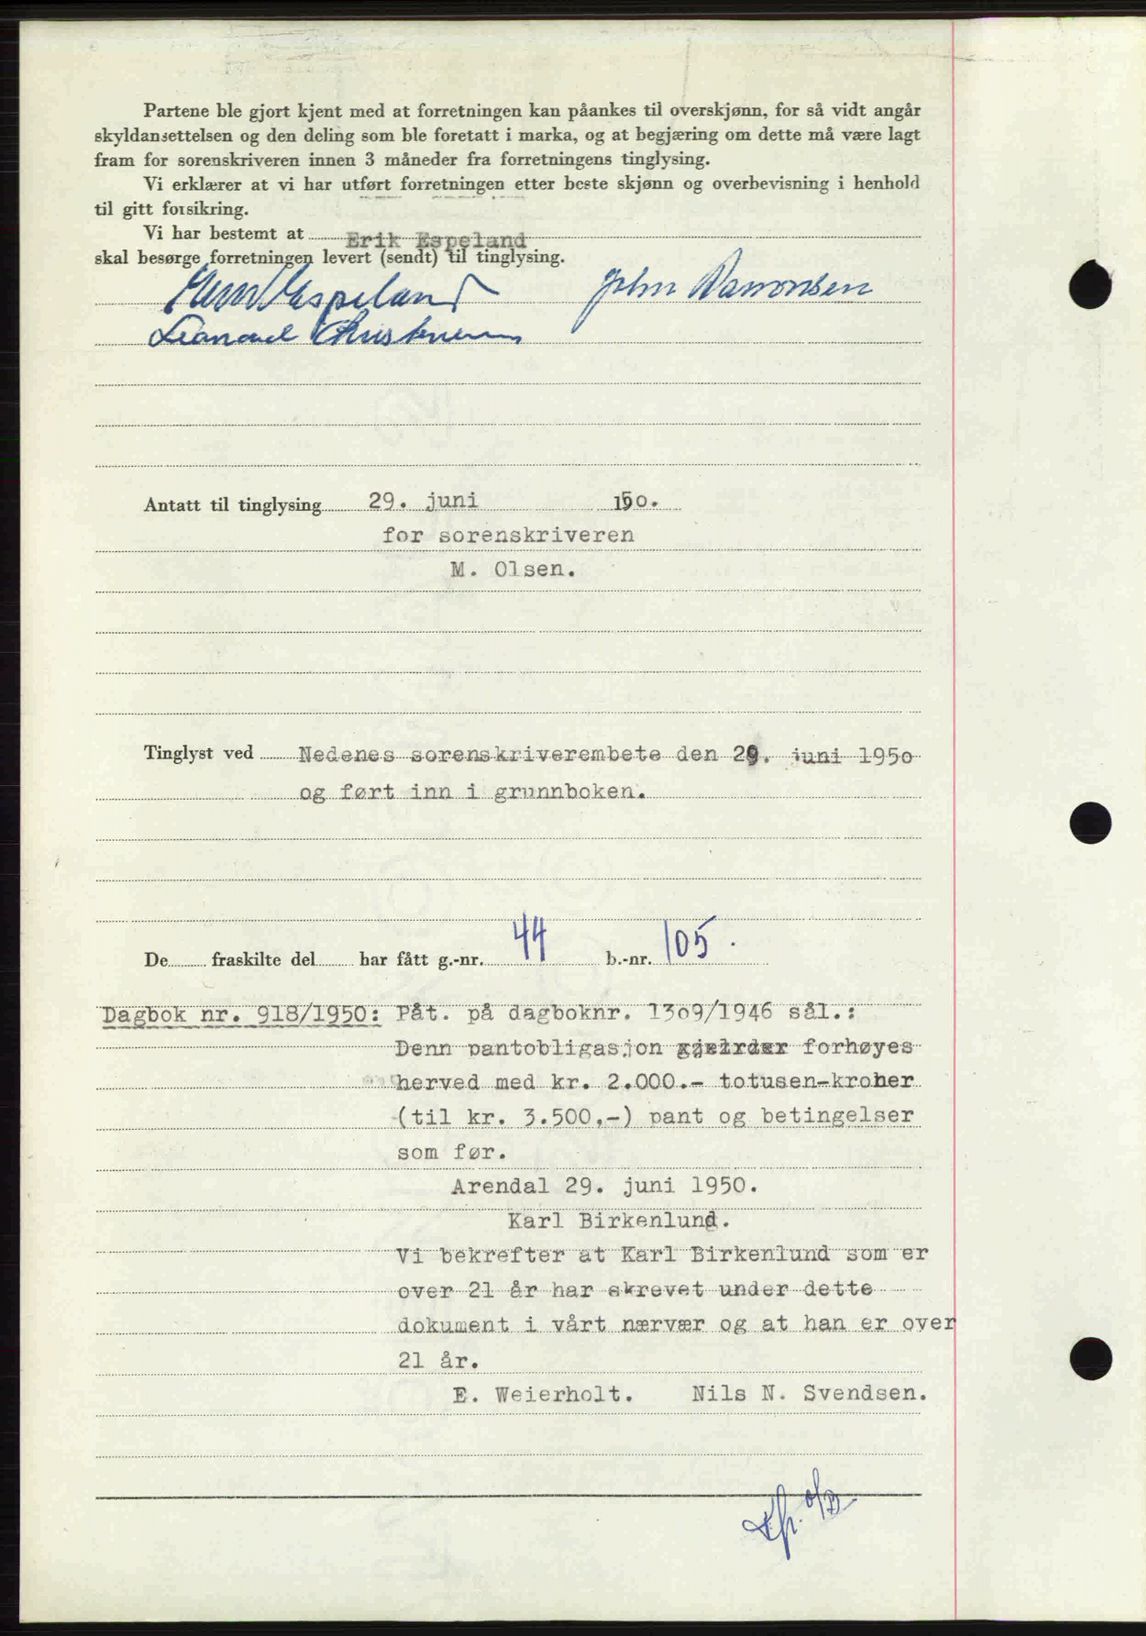 Partene ble gjort kjent med at forretningen kan påankes til overskjønn, for så vidt angår
skyldansettelsen og den deling som ble foretatt i marka, og at begjæring om dette må være lagt
fram for sorenskriveren innen 3 måneder fra forretningens tinglysing.
Vi erklærer at vi har utført forretningen etter beste skjønn og overbevisning i henhold
til gitt forsikring.
Vi har bestemt at Erik Espeland
skal besørge forretningen levert (sendt) til tinglysing.
Espeland John
Leonard
Antatt til tinglysing 29. juni 1950.
for sorenskriveren
M. Olsen.
Tinglyst ved Nedenes sorenskriverembete den 29. juni 1950
og ført inn i grunnboken.
De fraskilte del har fått g.-nr. 44 b.-nr. 105.
Dagbok nr. 918/1950: Påt. på dagboknr. 1309/1946 sål.:
Denn pantobligasjon forhøyes
herved med kr. 2.000.- totusen-kroner
(til kr. 3.500,-) pant og betingelser
som før.
Arendal 29. juni 1950.
Karl Birkenlund.
Vi bekrefter at Karl Birkenlund som er
over 21 år har skrevet under dette
dokument i vårt nærvær og at han er over
21 år.
E. Weierholt. Nils N. Svendsen.